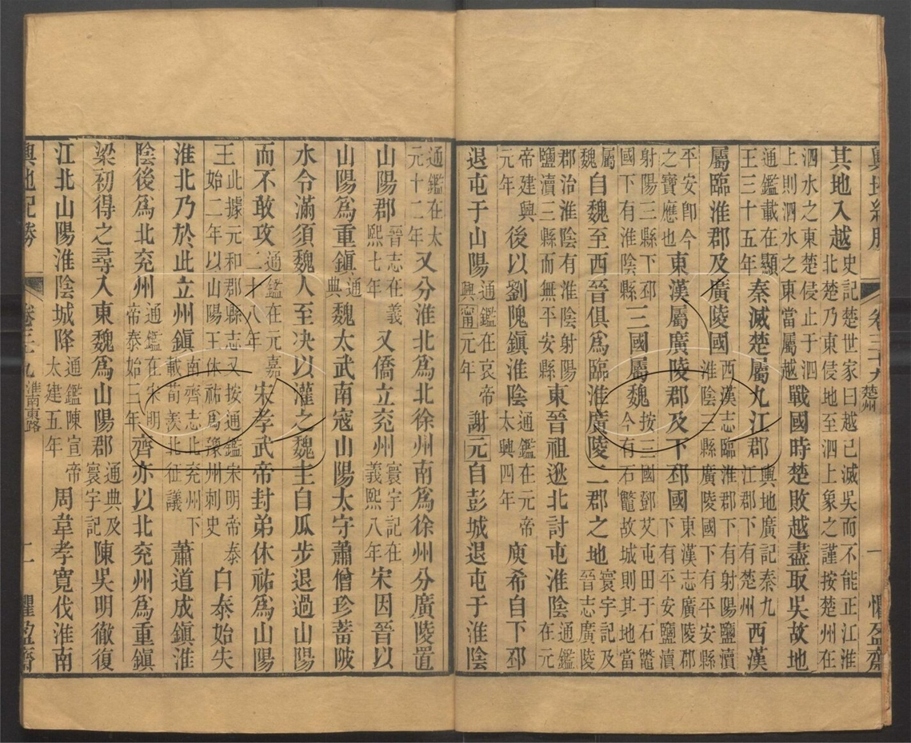 輿地紀勝 卷三十九 楚州 一 懼盈齋
其地入越史記楚世家曰越已滅吳而不能正江淮北楚乃東侵地至泗上象之謹按楚州在
泗水之東楚侵止于泗上則泗水之東當屬越戰國時楚敗越盡取吳故地
通鑑載在顯王三十五年秦滅楚屬九江郡輿地廣記秦九江郡下有楚州西漢
屬臨淮郡及廣陵國西漢志臨淮郡下有射陽鹽瀆淮陰三縣廣陵國下有平安縣
平安卽今之寶應也東漢屬廣陵郡及下邳國東漢志廣陵郡下有平安鹽瀆
射陽三縣下邳國下有淮陰縣三國屬魏按三國鄧艾屯田于石鼈今有石鼈故城則其地當
屬魏自魏至西晉俱爲臨淮廣陵二郡之地寰宇記及晉志廣陵
郡治淮陰有淮陰射陽鹽瀆三縣而無平安縣東晉祖逖北討屯淮陰通鑑在元
帝建興元年後以劉隗鎮淮陰通鑑在元帝太興四年庾希自下邳
退屯于山陽通鑑在哀帝興甯元年謝元自彭城退屯于淮陰
通鑑在太元十二年又分淮北爲北徐州南爲徐州分廣陵置
山陽郡晉志在義熙七年又僑立兗州寰宇記在義熙八年宋因晉以
山陽爲重鎮通典魏太武南寇山陽太守蕭僧珍蓄陂
水令滿須魏人至決以灌之魏主自瓜步退過山陽
而不敢攻通鑑在元嘉二十八年宋孝武帝封弟休祐爲山陽
王此據元和郡縣志又按通鑑宋明帝泰始二年以山陽王休祐爲豫州刺史白泰始失
淮北乃於此立州鎮南齊志北兗州下載荀羨北征議蕭道成鎮淮
陰後爲北兗州通鑑在宋明帝泰始三年齊亦以北兗州爲重鎮
梁初得之尋入東魏爲山陽郡通典及寰宇記陳吳明徹復
江北山陽淮陰城降通鑑陳宣帝太建五年周韋孝寬伐淮南
輿地紀勝 卷三十九 淮南東路 二 懼盈齋